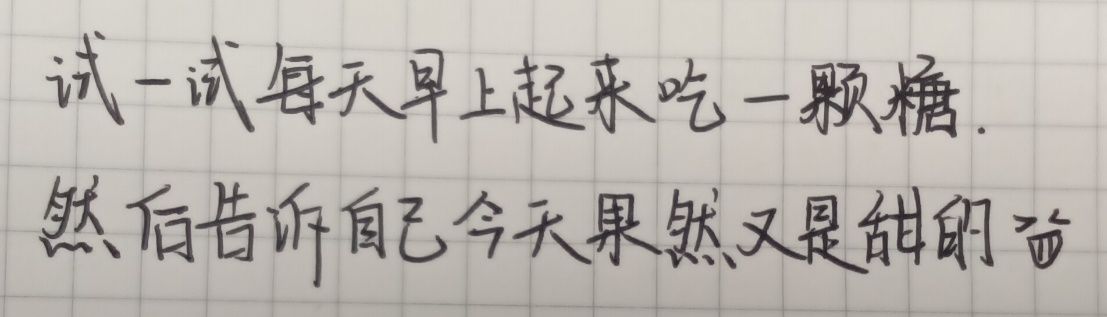 试一试每天早上起来吃一颗糖.
然后告诉自己今天果然又是甜的